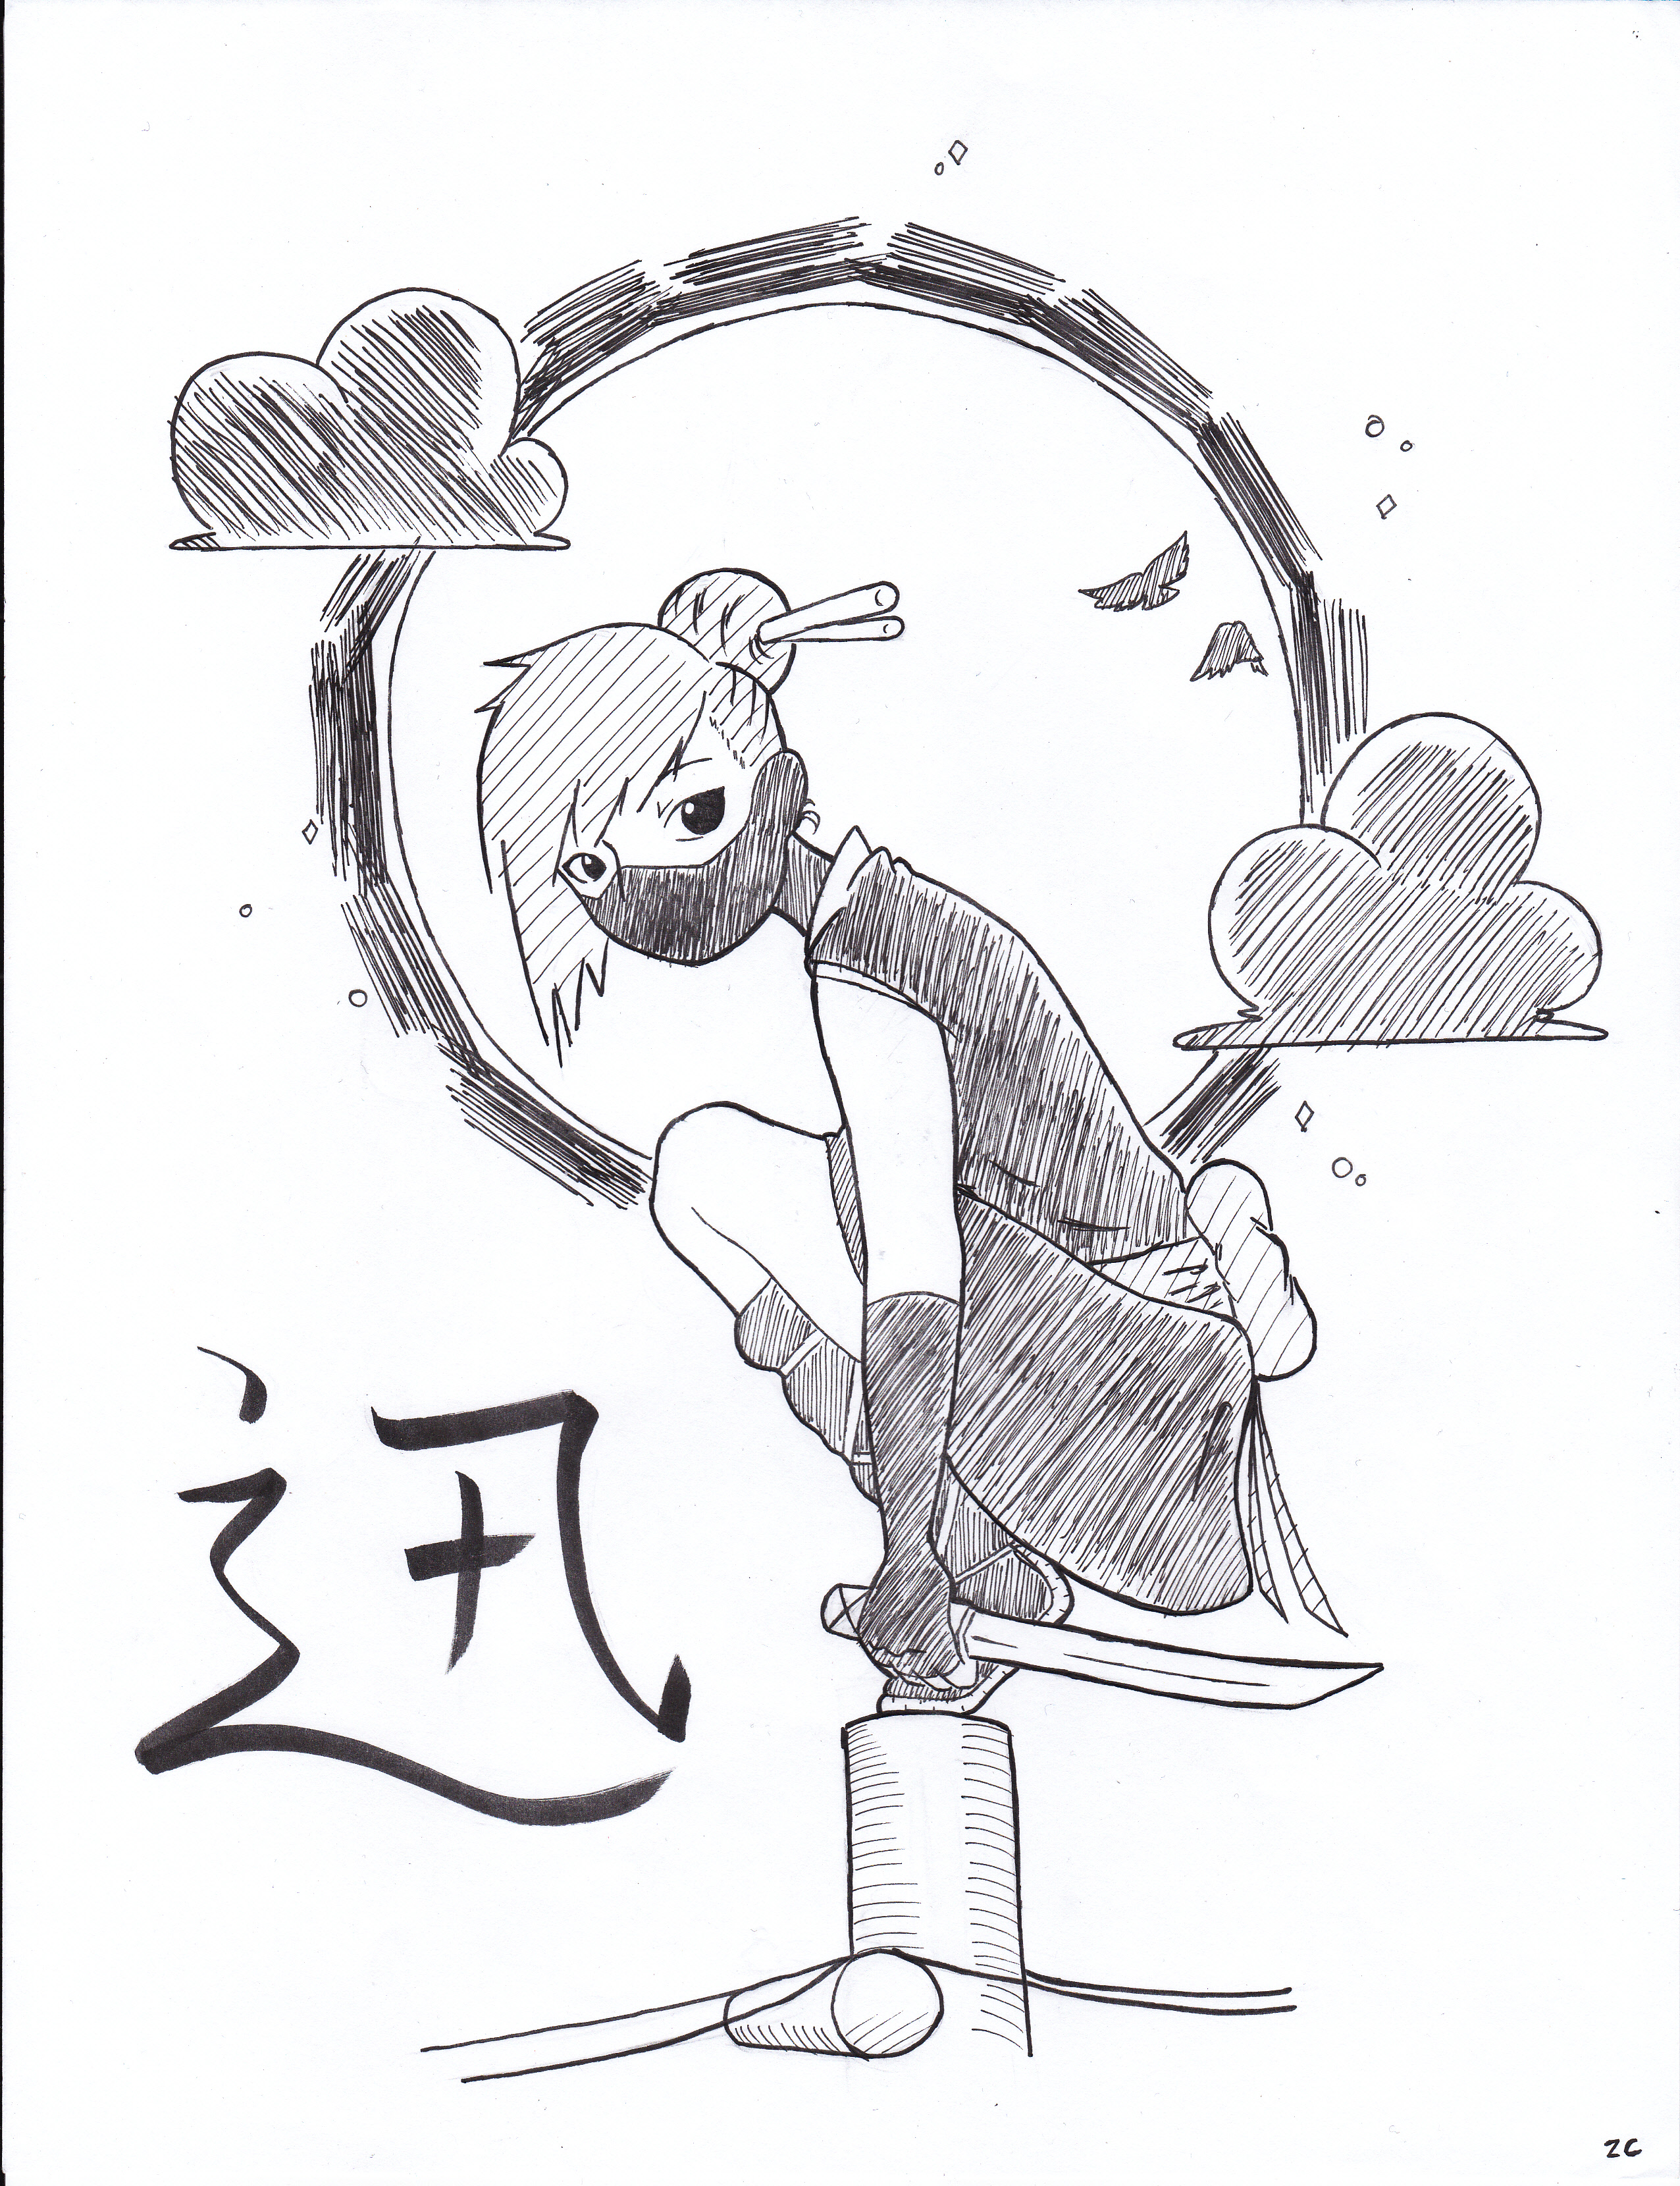 迅
ZC